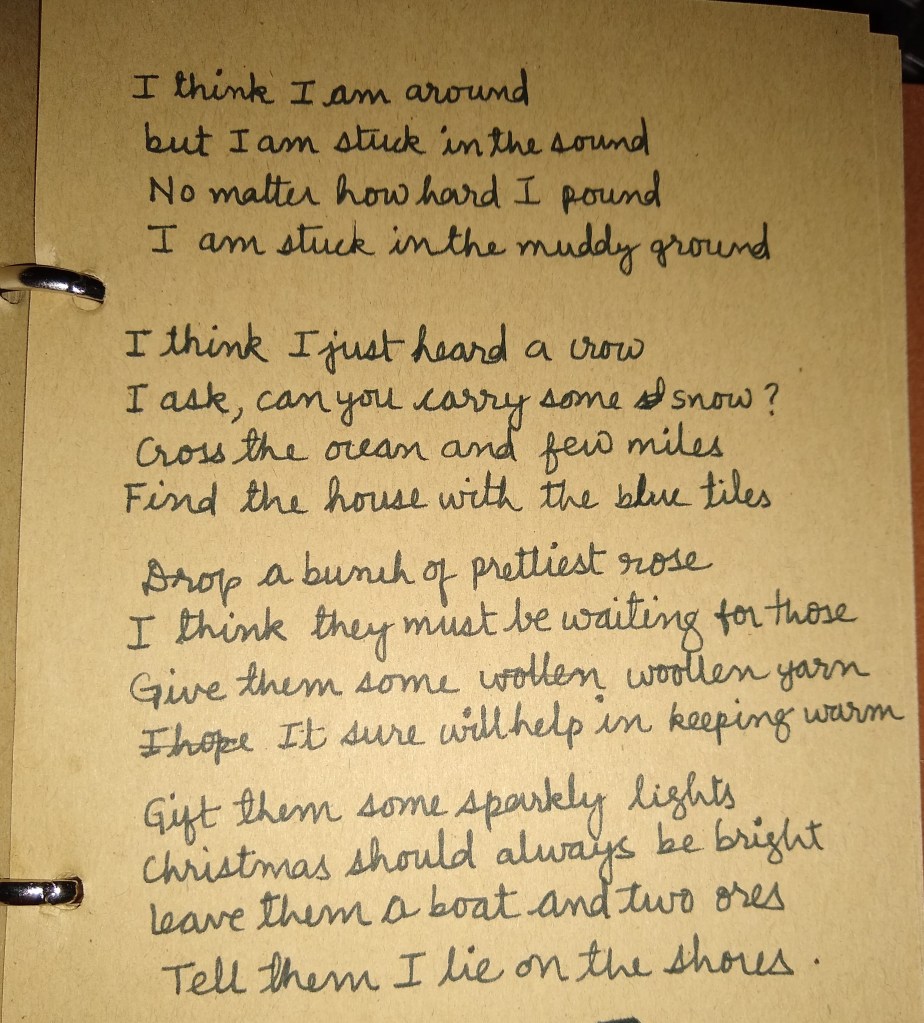 I think I am around
but I am stuck in the sound
No matter how hard I pound
I am stuck in the muddy ground
I think I just heard a crow
I ask, can you carry some snow?
Cross the ocean and few miles
Find the house with the blue tiles
Drop a bunch of prettiest rose
I think they must be waiting for those
Give them some wollen woollen yarn
I hope It sure will help in keeping warm
Gift them some sparkly lights
Christmas should always be bright
leave them a boat and two ores
Tell them I lie on the shores.